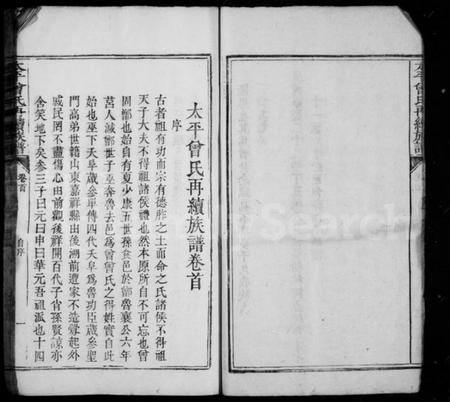 太平曾氏再續族譜卷首
序
古者祖有功而宗有德胙之土而命之氏諸侯不得祖
天子大夫不得祖諸侯禮也然本原所自不可忘也曾
固鄫也始自有夏少康五世孫食邑於鄫魯襄公六年
莒人滅鄫世子巫奔魯去邑為曾曾氏之得姓實自此
始也巫下夭阜蒧參畢傳四代夭阜為魯功臣蒧參聖
門高弟世籍山東嘉祥縣由後湖前遭家不造釁起外
戚民罔不盡傷心由前觀後祥開百代子肖孫賢諒亦
含笑地下矣參三子曰元曰申曰華元吾祖派也十四
太平曾氏再續族譜
卷首
自序
一
太平曾氏再續族譜
FamilySearch